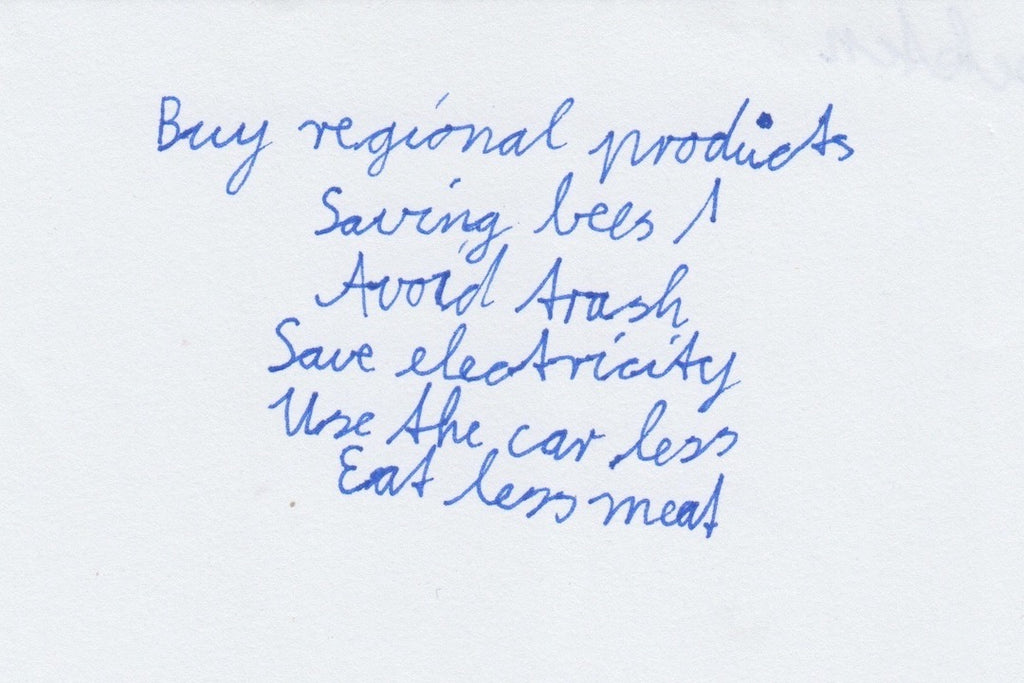 Buy regional products
Saving bees!
Avoid trash
Save electricity
Use the car less
Eat less meat